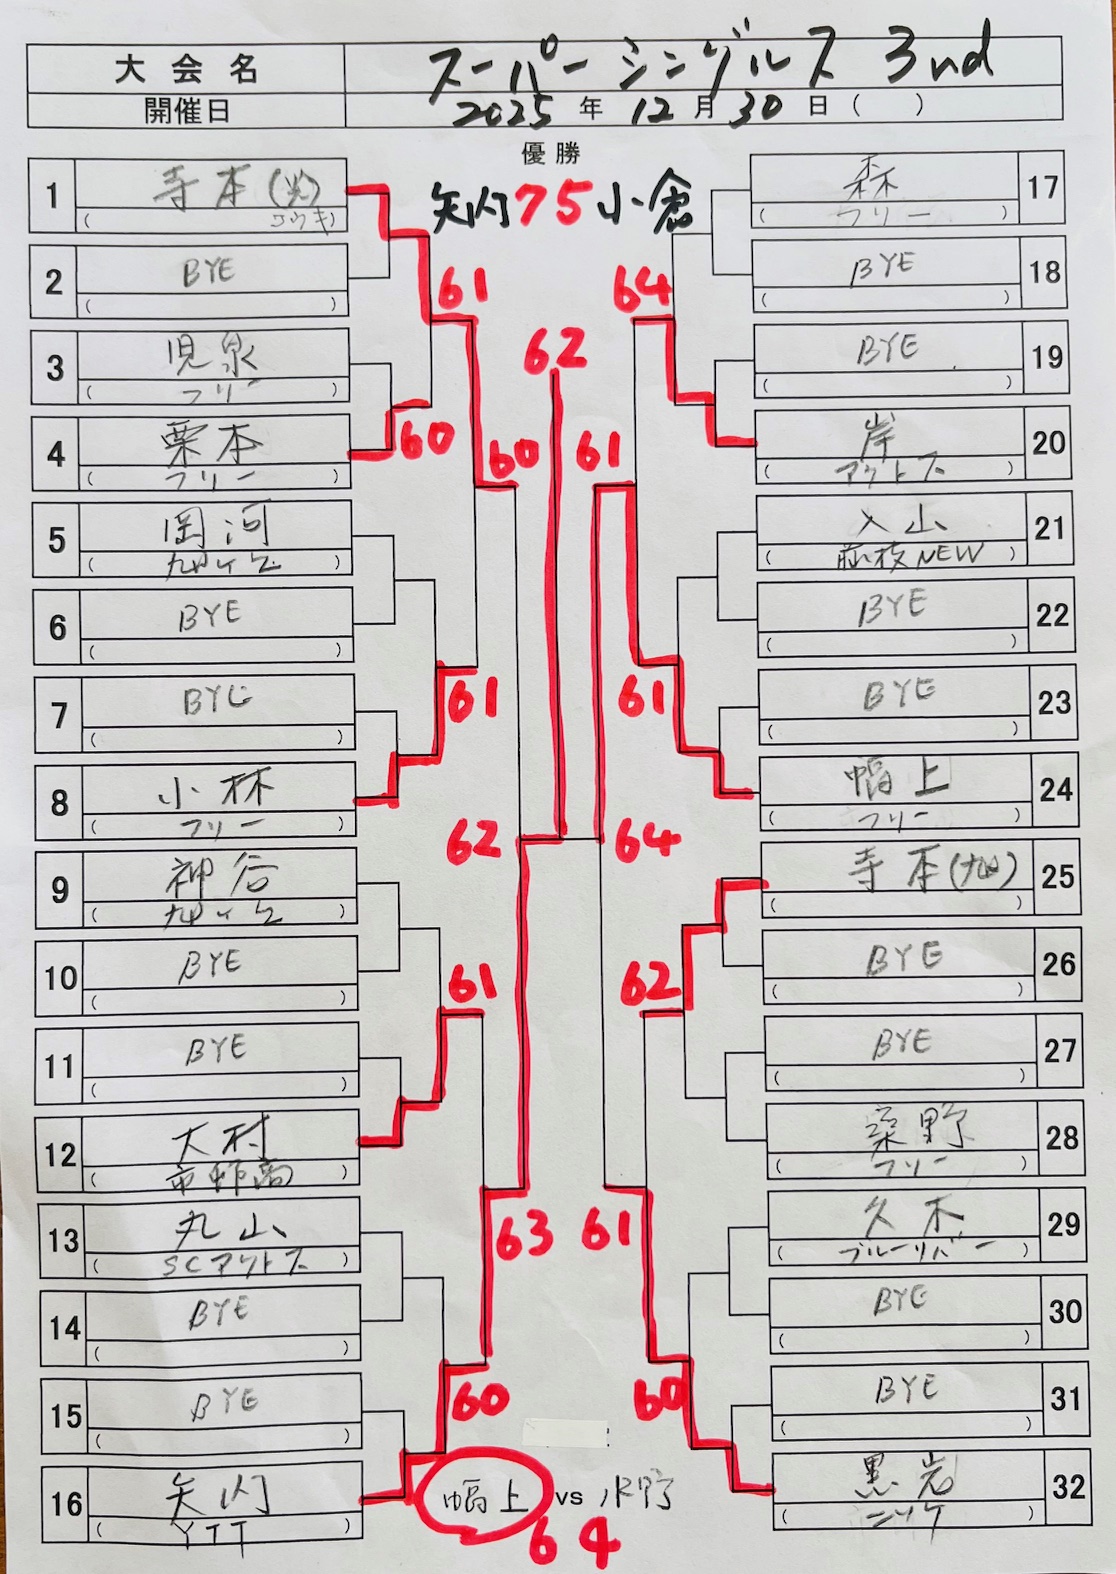 大会名 スーパーシングルス 3nd
開催日 2025年 12月 30日 ( )
優勝
矢内 75 小倉
1 寺本(光)
( コウキ)
2 BYE
( )
3 児泉
( フリー )
4 栗本
( フリー )
5 岡河
( )
6 BYE
( )
7 BYE
( )
8 小林
( フリー )
9 神谷
( )
10 BYE
( )
11 BYE
( )
12 大村
( )
13 丸山
( SCアクトス )
14 BYE
( )
15 BYE
( )
16 矢内
( YTT )
61
60
60
61
62
61
63
60
62
17 森
( フリー )
18 BYE
( )
19 BYE
( )
20 岸
( アクトス )
21 入山
( 藤枝NEW )
22 BYE
( )
23 BYE
( )
24 幅上
( フリー )
25 寺本(九州)
( )
26 BYE
( )
27 BYE
( )
28 桒野
( フリー )
29 久木
( ブルーリバー )
30 BYE
( )
31 BYE
( )
32 黒岩
( ニッケ )
64
61
61
64
62
61
60
幅上 vs 水野
64